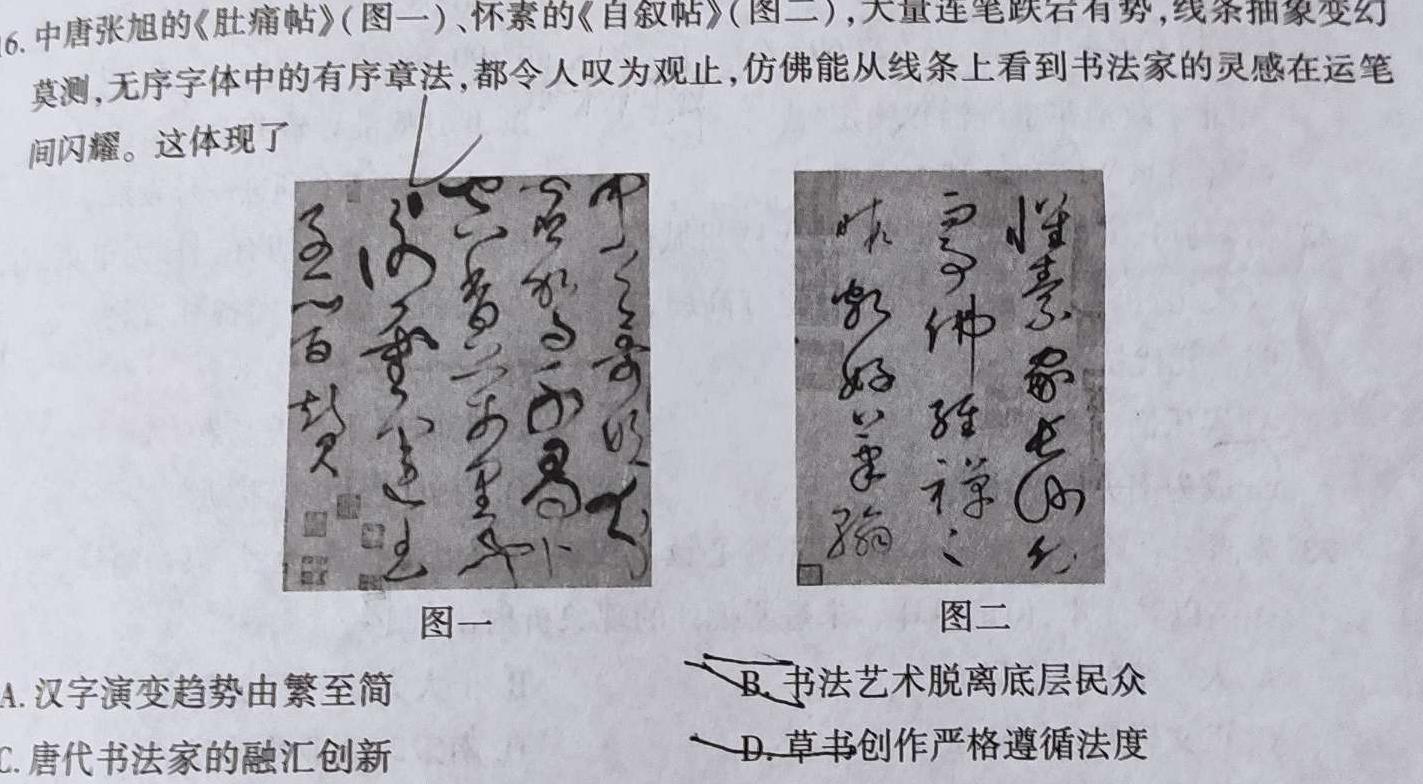 16.中唐张旭的《肚痛帖》(图一)、怀素的《自叙帖》(图二),大量连笔跌宕有势,线条抽象变幻
莫测,无序字体中的有序章法,都令人叹为观止,仿佛能从线条上看到书法家的灵感在运笔
间闪耀。这体现了
怀素家长沙幼
而事佛经禅之
暇颇好笔翰
图一
图二
A.汉字演变趋势由繁至简
B.书法艺术脱离底层民众
C.唐代书法家的融汇创新
D.草书创作严格遵循法度